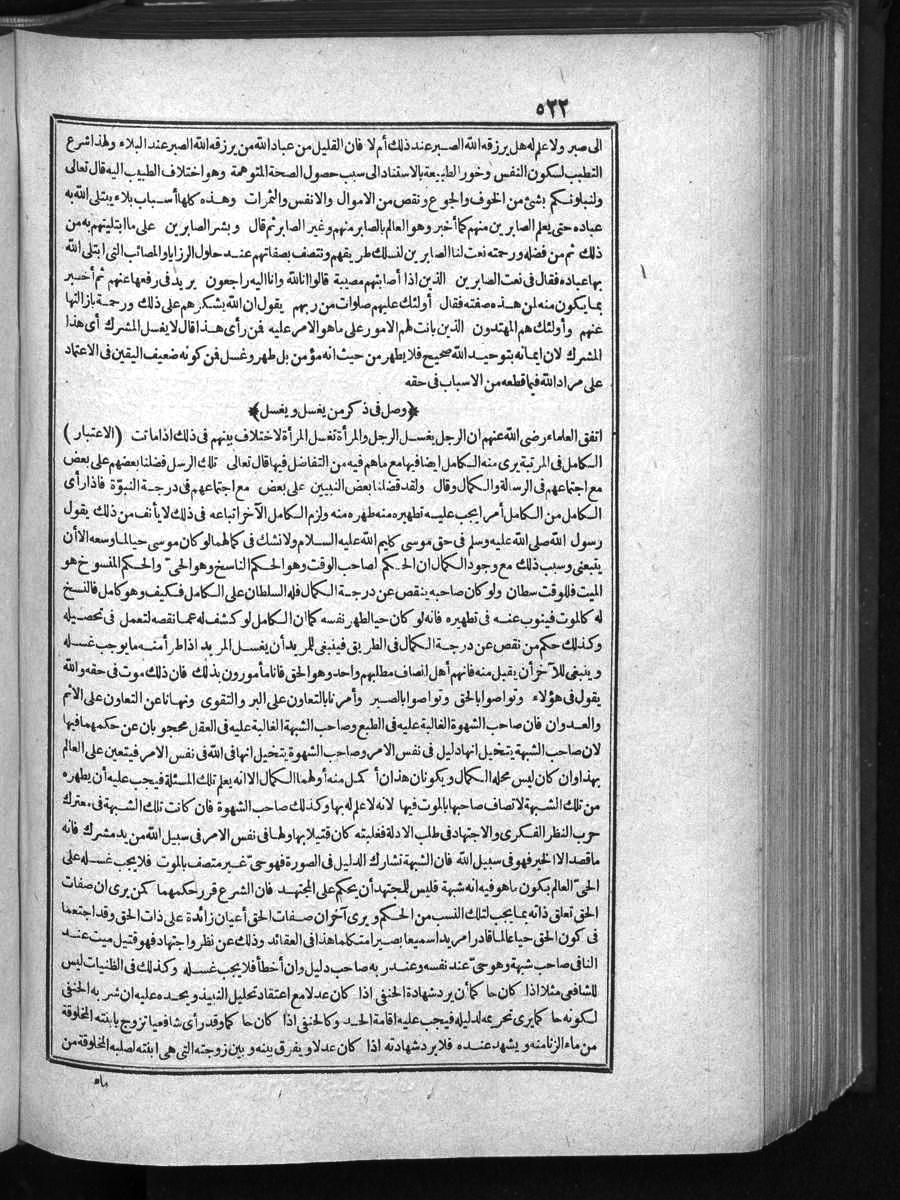 ٥٢٢
الى صبر ولا علم له هل يرزقه الله الصبر عند ذلك أم لا فان القليل من عباد الله من يرزقه الله الصبر عند البلاء ولهذا شرع
التطبب لسكون النفس وخور الطبيعة بالاستناد الى سبب حصول الصحة المتوهمة وهو اختلاف الطبيب اليه قال تعالى
ولنبلونكم بشئ من الخوف والجوع ونقص من الاموال والانفس والثمرات وهذه كلها أسباب بلاء يبتلى الله به
عباده حتى يعلم الصابرين منهم كما أخبر وهو العالم بالصابر منهم وغير الصابر ثم قال وبشر الصابرين على ما ابتليتهم به من
ذلك ثم من فضله ورحمته نعت لنا الصابرين لنسلك طريقهم ونتصف بصفاتهم عند حلول الرزايا والمصائب التى ابتلى الله
بها عباده فقال فى نعت الصابرين الذين اذا أصابتهم مصيبة قالوا انا لله وانا اليه راجعون يريد فى رفعها عنهم ثم أخبر
بما يكون منه لمن هذه صفته فقال أولئك عليهم صلوات من ربهم يقول ان الله يشكرهم على ذلك ورحمة بازالتها
عنهم وأولئك هم المهتدون الذين بانت لهم الامور على ما هو الامر عليه فمن رأى هذا قال لا يغسل المشرك أى هذا
المشرك لان ايمانه بتوحيد الله صحيح فلا يطهر من حيث انه مؤمن بل طهر وغسل فمن كونه ضعيف اليقين فى الاعتماد
على مراد الله فيما قطعه من الاسباب فى حقه
﴿وصل فى ذكر من يغسل ويغسل﴾
اتفق العلماء رضى الله عنهم ان الرجل يغسل الرجل والمرأة تغسل المرأة لاختلاف بينهم فى ذلك اذا ماتت (الاعتبار)
الكامل فى المرتبة يرى منه الكامل ايضا فيها مع ما هم فيه من التفاضل فيها قال تعالى تلك الرسل فضلنا بعضهم على بعض
مع اجتماعهم فى الرسالة والكمال وقال ولقد فضلنا بعض النبيين على بعض مع اجتماعهم فى درجة النبوّة فاذا رأى
الكامل من الكامل أمرا يجب عليه تطهيره منه طهره منه ولزم الكامل الآخر اتباعه فى ذلك لا يأنف من ذلك يقول
رسول الله صلى الله عليه وسلم فى حق موسى كليم الله عليه السلام ولا نشك فى كمالهما لو كان موسى حيا لما وسعه الا أن
يتبعنى وسبب ذلك مع وجود الكمال ان الحكم لصاحب الوقت وهو الحكم الناسخ وهو الحىّ والحكم المنسوخ هو
الميت فللوقت سلطان ولو كان صاحبه ينقص عن درجة الكمال فله السلطان على الكامل فكيف وهو كامل فالنسخ
له كالموت فينوب عنه فى تطهيره فانه لو كان حيا لطهر نفسه كما ان الكامل لو كشف له عما نقصه لتعمل فى تحصيله
وكذلك حكم من نقص عن درجة الكمال فى الطريق فينبغى للمريد أن يغسل المريد اذا طرأ منه ما يوجب غسله
وينبغى للآخر أن يقبل منه فانهم أهل انصاف مطلبهم واحد وهو الحق فانا مأمورون بذلك فان ذلك موت فى حقه والله
يقول فى هؤلاء وتواصوا بالحق وتواصوا بالصبر وأمرنا بالتعاون على البر والتقوى ونهانا عن التعاون على الاثم
والعدوان فان صاحب الشهوة الغالبة عليه فى الطبع وصاحب الشبهة الغالبة عليه فى العقل محجوبان عن حكمهما فيها
لان صاحب الشبهة يتخيل انها دليل فى نفس الامر وصاحب الشهوة يتخيل انها فى الله فى نفس الامر فيتعين على العالم
بهذا وان كان ليس محله الكمال ويكونان هذان أكمل منه أو لهما الكمال الا انه يعلم تلك المسئلة فيجب عليه أن يطهره
من تلك الشبهة لاتصاف صاحبها بالموت فيها لانه لا علم له بها وكذلك صاحب الشهوة فان كانت تلك الشبهة فى معترك
حرب النظر الفكرى والاجتهاد فى طلب الادلة فغلبته كان قتيلا بها ولها فى نفس الامر فى سبيل الله من يد مشرك فانه
ما قصد الا الخير فهو فى سبيل الله فان الشبهة تشارك الدليل فى الصورة فهو حىّ غير متصف بالموت فلا يجب غسله على
الحىّ العالم بكون ما هو فيه انه شبهة فليس للمجتهد أن يحكم على المجتهد فان الشرع قرر حكمهما كمن يرى ان صفات
الحق تعلق ذاته بما يجب لتلك النسب من الحكم ويرى آخر ان صفات الحق أعيان زائدة على ذات الحق وقد اجتمعا
فى كون الحق حيا عالما قادرا مريدا سميعا بصيرا متكلما هذا فى العقائد وذلك عن نظر واجتهاد فهو قتيل ميت عند
النافى صاحب شبهة وهو حىّ عند نفسه وعند ربه صاحب دليل وان أخطأ فلا يجب غسله وكذلك فى الظنيات ليس
للشافعى مثلا اذا كان حاكما أن يرد شهادة الحنفى اذا كان عدلا مع اعتقاد تحليل النبيذ ويحده عليه ان شربه الحنفى
لكونه حاكما يرى تحريمه لدليله فيجب عليه اقامة الحد وكالحنفى اذا كان حاكما وقد رأى شافعيا تزوج بابنته المخلوقة
من ماء الزنا منه ويشهد عنده فلا يرد شهادته اذا كان عدلا ويفرق بينه وبين زوجته التى هى ابنته لصلبه المخلوقة من
ماء